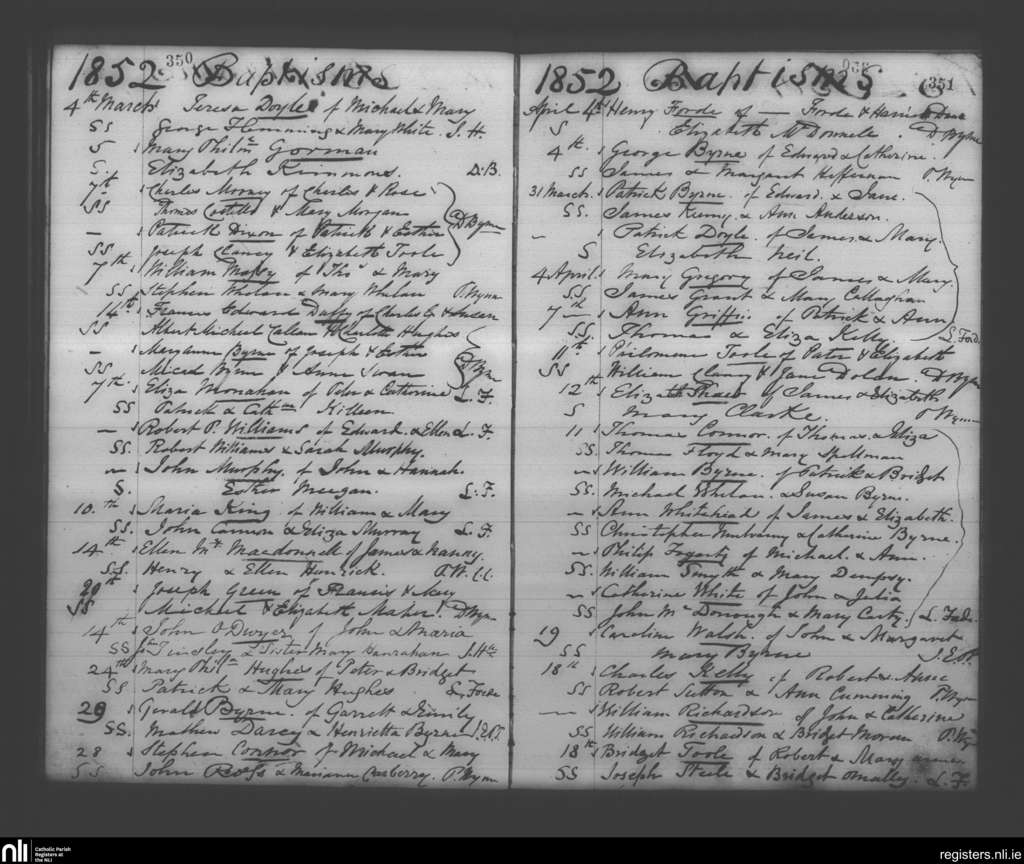 1852 350 Baptisms
4th March Teresa Doyle of Michael & Mary
SS George Flemming & Mary White J. H.
S Mary Philm Gorman
S. Elizabeth Kimmons. D.B.
7th Charles Morney of Charles & Rose
SS Thomas Costello & Mary Morgan
— Patrick Dixon of Patrick & Esther D Byrne
SS Joseph Clancy & Elizabeth Toole
7th William of Thos & Mary
SS Stephen Whelan & Mary Whelan P. Wynn
14th Frances Edward Duffy of Charles &
SS Albert Michael & Hughes
— Maryanne Byrne of Joseph & Esther
SS Byrne & Anne D Byrne
7th Eliza Monahan of Peter & Catherine L. F.
SS Patrick & Cathne Killeen
— Robert P. Williams of Edward & Ellen L. F.
SS. Robert Williams & Sarah Murphy.
— John Murphy of John & Hannah.
S. Esther Meegan. L. F.
10th Maria King of William & Mary
SS. John Cannon & Eliza Murray L. F.
14th Ellen Mt Macdonnell of James & Nanny.
SS. Henry & Ellen Henrick. P. W. C.C.
20th Joseph Green of Francis & Mary
SS Michael & Elizabeth Maher. D Byrne
14th John O Dwyer of John & Maria
SS Tinsley & Sister Mary Hanrahan
24th Mary Philn Hughes of Peter & Bridget
SS Patrick & Mary Hughes L. Forde
28 Gerald Byrne. of Garrett & Emily
SS. Mathew Darcy & Henrietta Byrne
28 Stephen Connor of Michael & Mary
SS John Ross & Marianne Carberry. P. Wynn
1852 Baptisms 351
April 4th Henry Forde of — Forde & Harriet
S Elizabeth McDonnell. D Byrne
4th. George Byrne of Edward & Catherine.
SS James & Margaret Heffernan P. Wynn
31 March. Patrick Byrne. of Edward. & Jane.
SS. James Kenny. & Ann Anderson.
— Patrick Doyle. of James. & Mary.
S Elizabeth Neil.
4 April. Mary Gregory of James & Mary.
SS James Grant & Mary Callaghan
7th — Ann Griffin. of Patrick & Ann
SS. Thomas & Eliza Kelly L. Ford.
11th Philomene Toole of Peter & Elizabeth
SS William Clancy & Jane Dolan. D Byrne
12th Elizabeth of James & Elizabeth
S Mary Clarke. P Wynn
11 Thomas Connor. of Thomas. & Eliza
SS. Thomas Floyd & Mary Spellman
— William Byrne. of Patrick & Bridget
SS. Michael Whelan. & Susan Byrne.
— Ann Whitehead of James & Elizabeth.
SS Christopher Mulvanny & Catherine Byrne.
— Philip Fogarty of Michael. & Ann.
SS. William Smyth & Mary Dempsy.
— Catherine White of John & Julia
SS John McDonough & Mary Carty. L. Forde.
19 Caroline Walsh. of John & Margaret
SS Mary Byrne
18th Charles Kelly of Robert & Anne
SS Robert Sutton & Ann Cumming P. Wynn
— William Richardson of John & Catherine
SS William Richardson & Bridget Moran P. Wynn
18th Bridget Toole of Robert & Mary
SS Joseph Steele & Bridget Omalley. L. F.
nli
Catholic Parish
Registers at
the NLI
registers.nli.ie